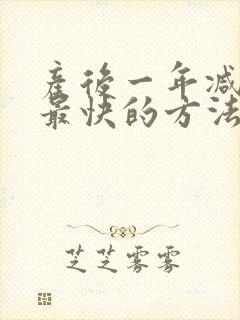 產後一年減
最快的方法
芝芝雾雾